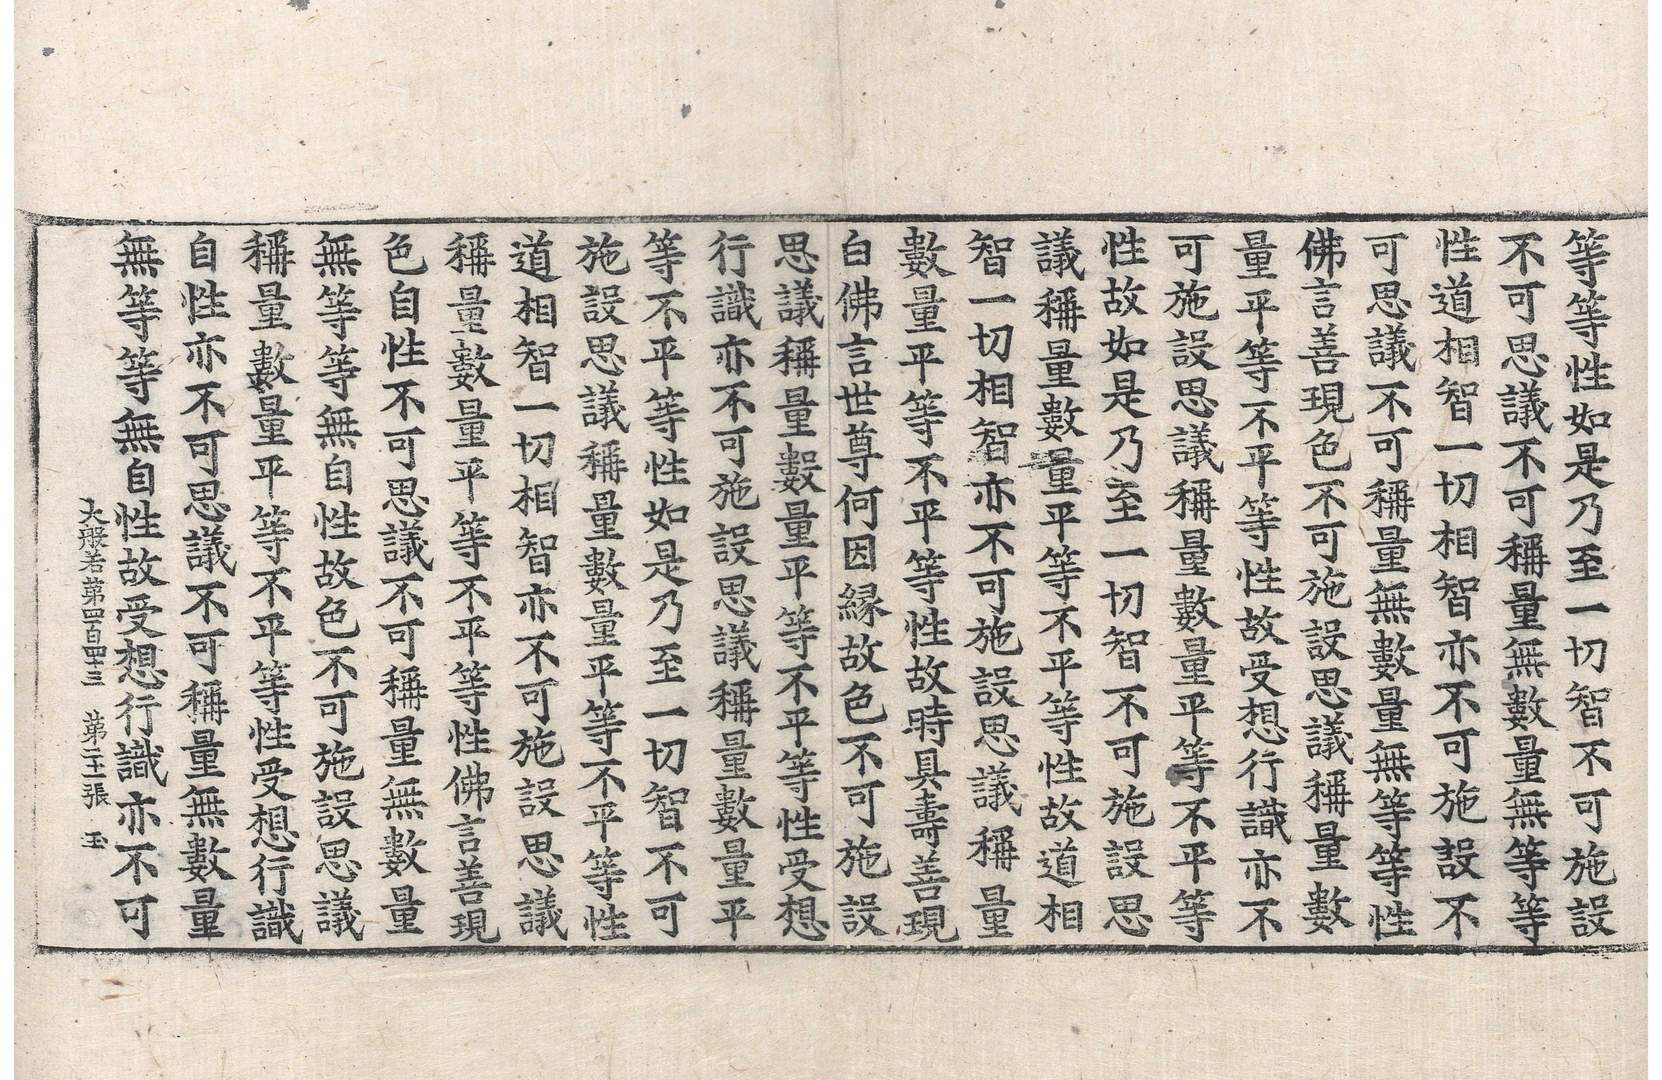 等等性如是乃至一切智不可施設
不可思議不可稱量無數量無等等
性道相智一切相智亦不可施設不
可思議不可稱量無數量無等等性
佛言善現色不可施設思議稱量數
量平等不平等性故受想行識亦不
可施設思議稱量數量平等不平等
性故如是乃至一切智不可施設思
議稱量數量平等不平等性故道相
智一切相智亦不可施設思議稱量
數量平等不平等性故時具壽善現
白佛言世尊何因緣故色不可施設
思議稱量數量平等不平等性受想
行識亦不可施設思議稱量數量平
等不平等性如是乃至一切智不可
施設思議稱量數量平等不平等性
道相智一切相智亦不可施設思議
稱量數量平等不平等性佛言善現
色自性不可思議不可稱量無數量
無等等無自性故色不可施設思議
稱量數量平等不平等性受想行識
自性亦不可思議不可稱量無數量
無等等無自性故受想行識亦不可
大般若第四百四十三 第二十一張 玉